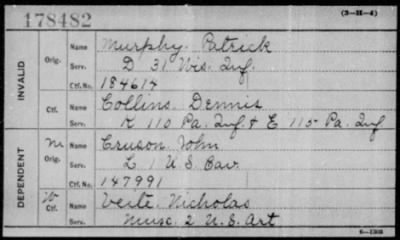 178482
(3-H-4)
INVALID
Orig.
Name Murphy Patrick
Serv. D 31 Wis. Inf.
Ctf. No. 184614
Ctf.
Name Collins Dennis
Serv. K 110 Pa. Inf. & E 115 Pa. Inf
DEPENDENT
M Orig.
Name Cruson John
Serv. L 1 U S Cav.
Ctf. No. 147991
W Ctf.
Name Veite Nicholas
Serv. Musc. 2 U.S. Art